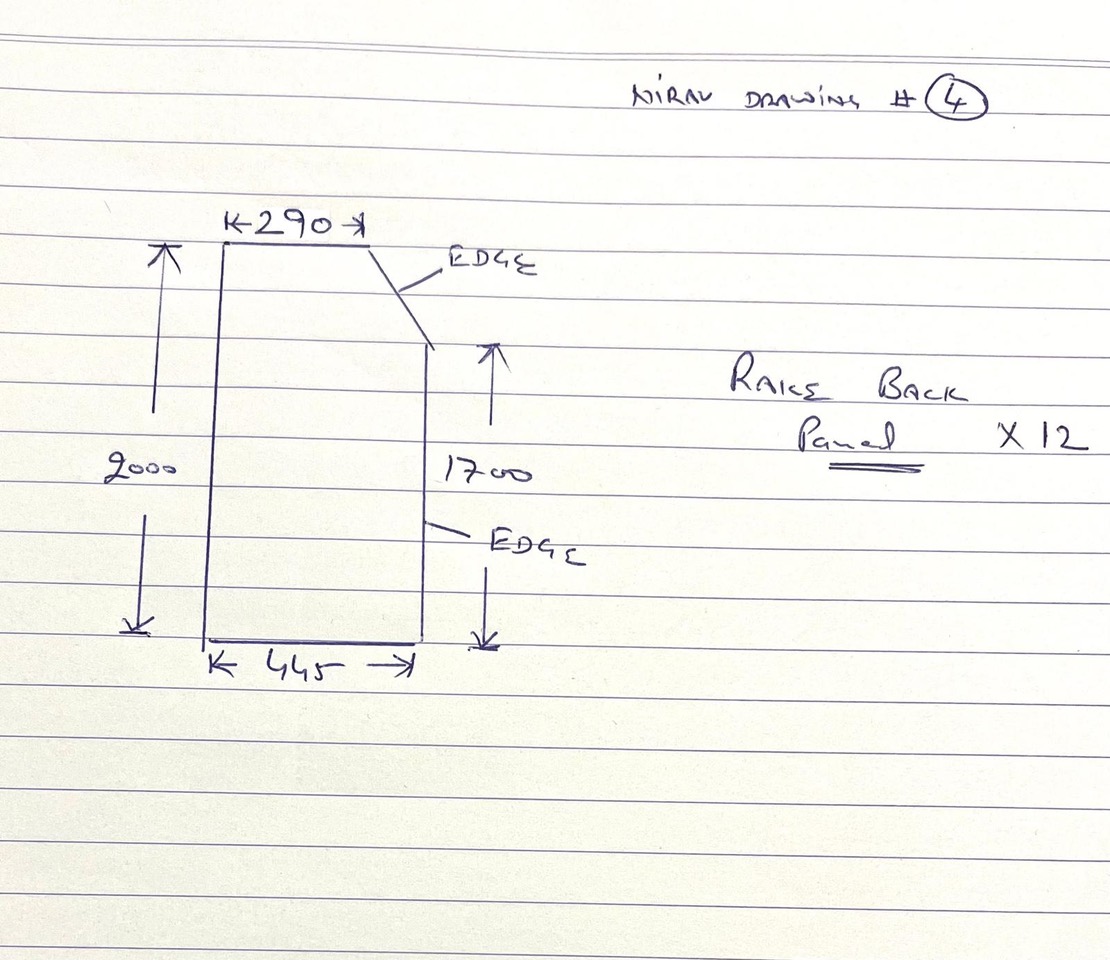 NIRAV DRAWING # 4
290
EDGE
RAKE BACK
Panel X 12
2000
1700
EDGE
445